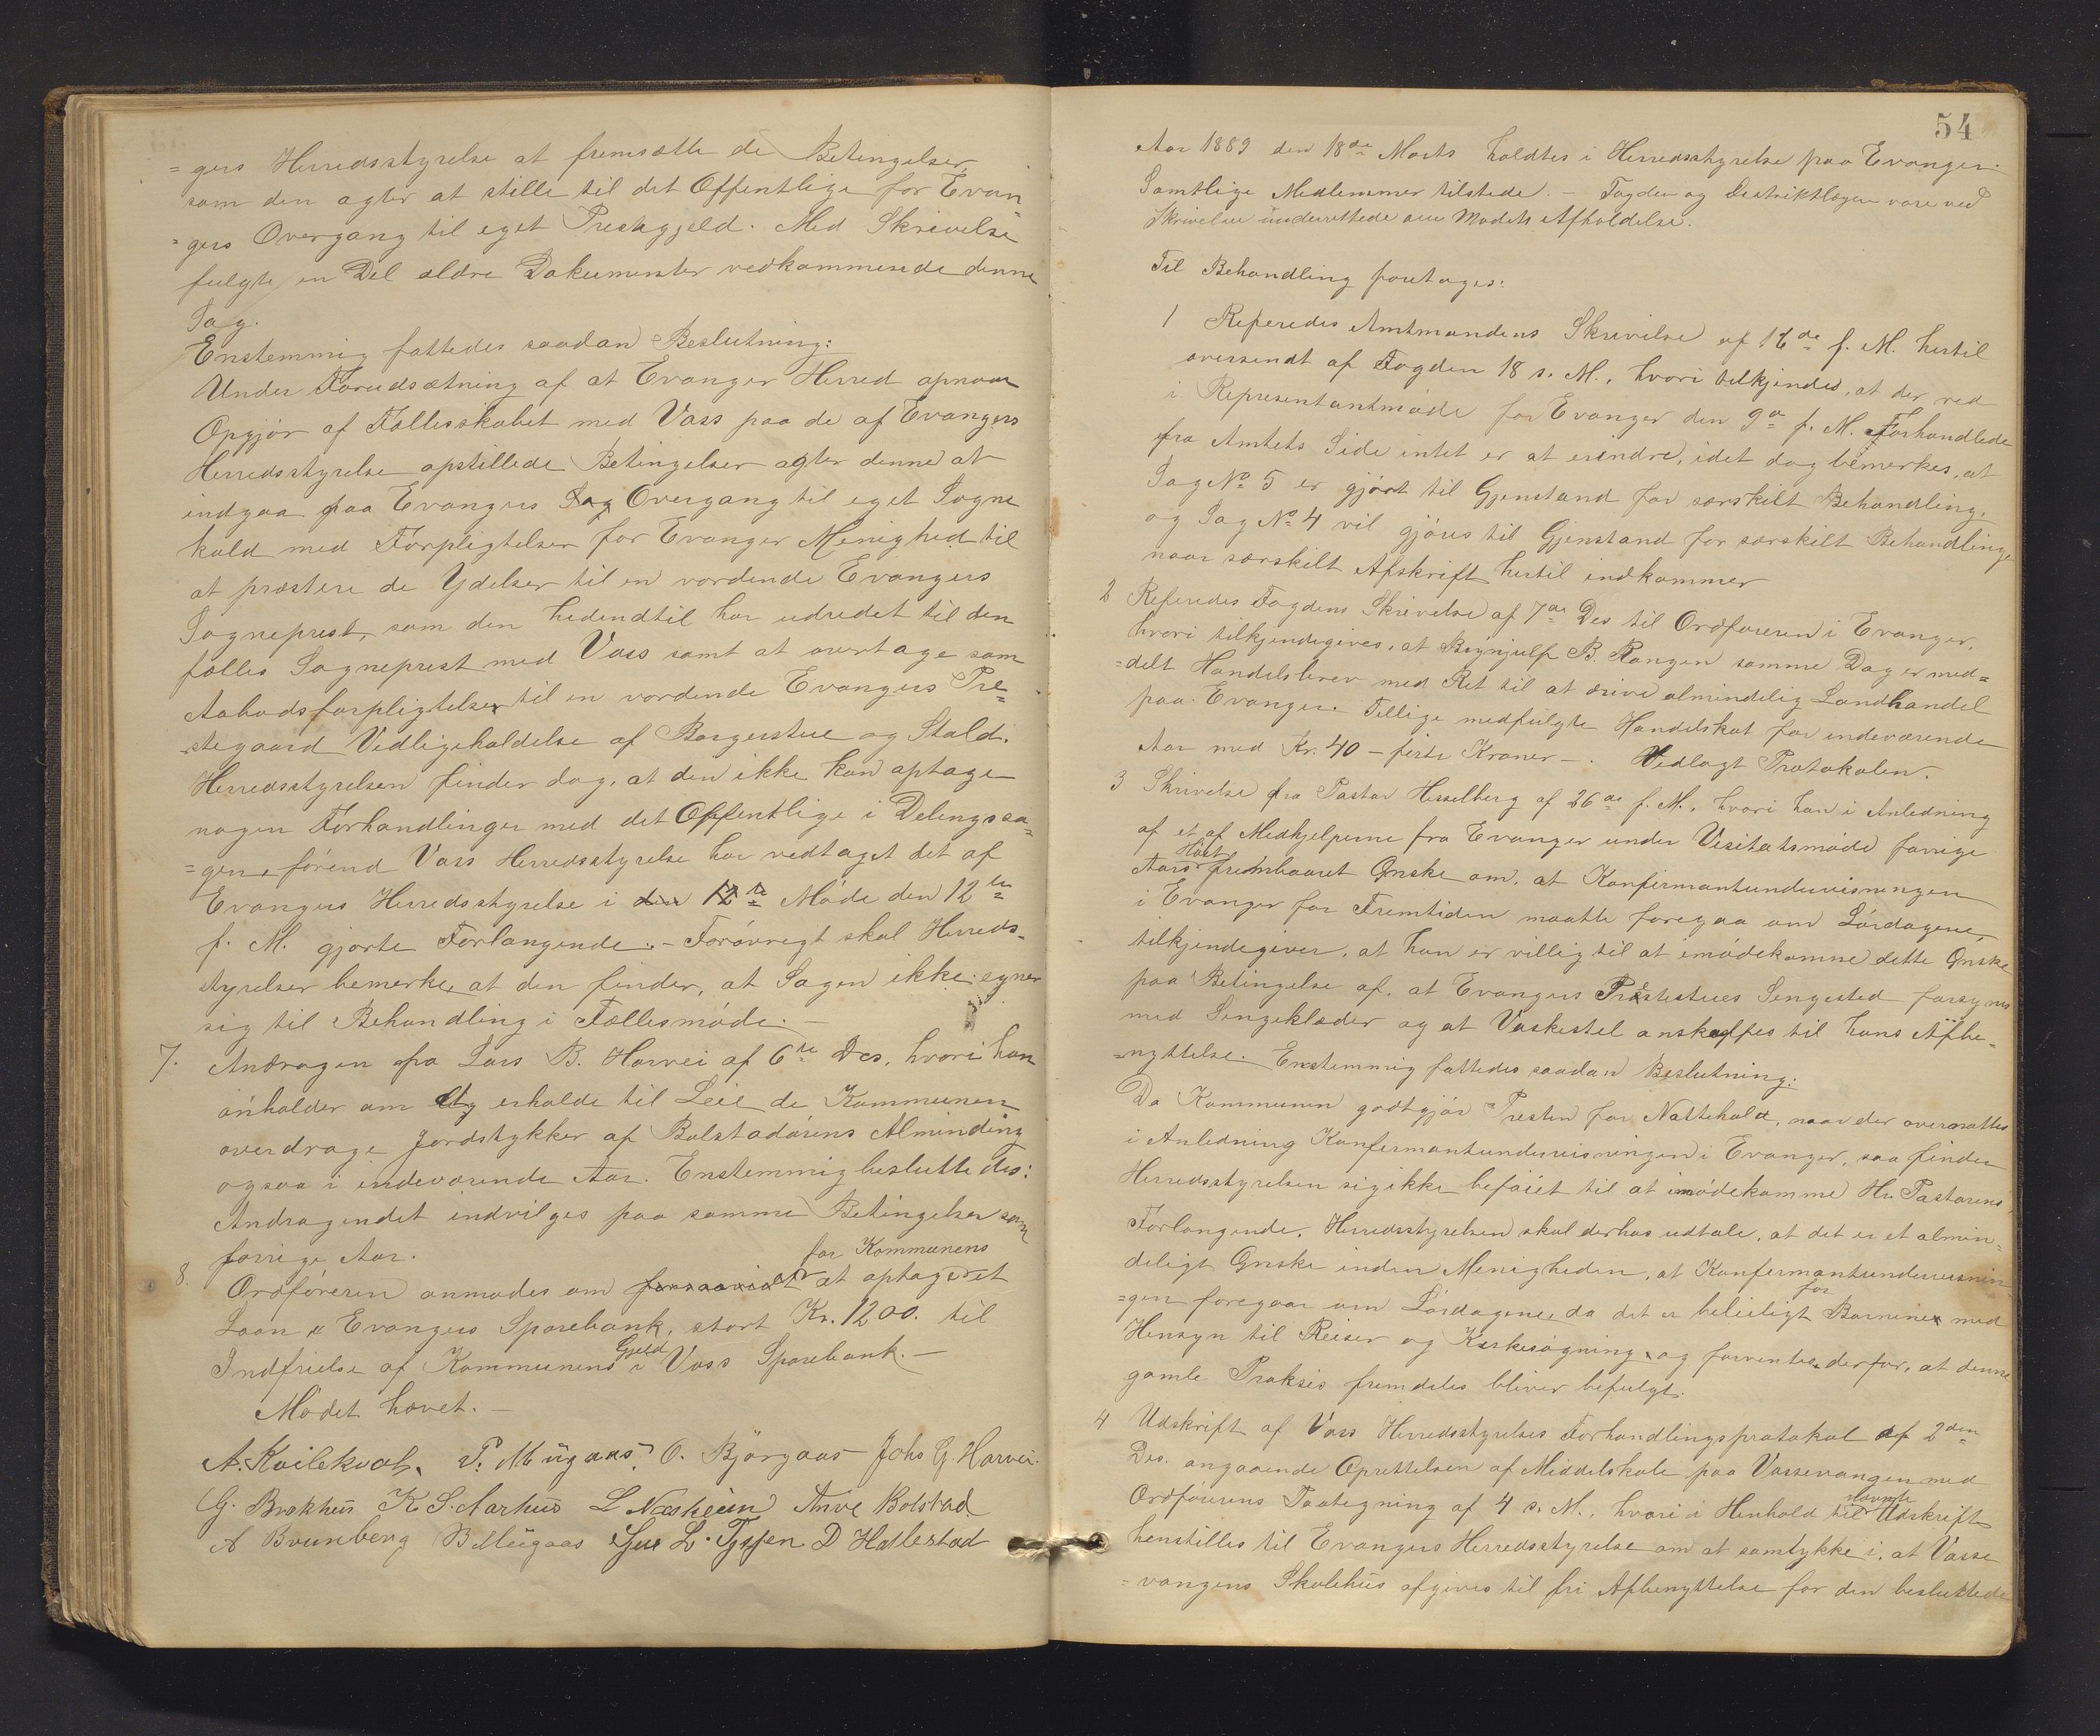 =gers Herredsstyrelse at fremsætte de Betingelser
som den agter at stille til det Offentlige for Evan
=gers Overgang til eget Prestegjeld. Med Skrivelse
fulgte en Del ældre Dokumenter vedkommende denne
Sag.
Enstemmig fattedes saadan Beslutning:
Under Forudsætning af at Evanger Herred opnaar
Opgjør af Fællesskabet med Voss paa de af Evangers
Herredsstyrelse opstillede Betingelser agter denne at
indgaa paa Evangers Sag Overgang til eget Sogne
kald med Forpligtelser for Evanger Menighed til
at præstere de Ydelser til en vordende Evangers
Sogneprest, som den hidendtil har udredet til den
fælles Sogneprest med Voss samt at overtage som
Aabodsforpligtelser til en vordende Evangers Pre=
stegaard Vedligeholdelse af Borgerstue og Stald.
Herredsstyrelsen finder dog, at den ikke kan optage
nogen Forhandlinger med det Offentlige i Delingssa=
=gen, førend Voss Herredsstyrelse har vedtaget det af
Evangers Herredsstyrelse i den 12te Møde den 12te
f. M. gjorte Forlangende. - Forøvregt skal Herreds-
styrelser bemerke, at den finder, at Sagen ikke egner
sig til Behandling i Fællesmøde. -
7. Andragen fra Lars B. Horvei af 6te Ds, hvori han
anholder om at erholde til Leie de Kommunen
overdragne Jordstykker af Bolstadørens Alminding
ogsaa i indeværende Aar. Enstemmig besluttedes:
Andragendet indvilges paa samme Betingelser som
forrige Aar.
for Kommunens
8. Ordføreren anmodes om at optage et
Laan i Evangers Sparebank, stort Kr. 1200. til
Indfrielse af Kommunens Gjeld i Voss Sparebank. -
Mødet hævet. -
A. Kvilekval, P. Mügaas O. Björgaas Johs G. Horvei.
G. Brakhus K S. Aarhus L Næsheim Anve Bolstad
A Brunberg B Mügaas L. Tyssen D Hallestad
54
Aar 1889 den 18de Marts holdtes i Herredsstyrelse paa Evanger.
Samtlige Medlemmer tilstede. - Fogden og Distriktlægen vare ved
Skrivelse underrettede om Mødets Afholdelse.
Til Behandling foretages:
1 Referedes Amtmandens Skrivelse af 16de f. M. hertil
oversendt af Fogden 18 s. M., hvori tilkjendes, at der ved
i Representantmøde for Evanger den 9de f. M. Forhandlede
fra Amtets Side intet er at erindre, idet dog bemerkes, at
Sag No 5 er gjort til Gjenstand for særskilt Behandling,
og Sag No 4 vil gjøres til Gjenstand for særskilt Behandling,
naar særskilt Afskrift hertil indkommer
2 Referedes Fogdens Skrivelse af 7de Ds til Ordføreren i Evanger,
hvori tilkjendegives, at Brynjulf B. Rongen samme Dag er med=
=delt Handelsbrev med Ret til at drive almindelig Landhandel
paa Evanger. Tillige medfulgte Handelskat for indeværende
Aar med Kr. 40 - firti Kroner -. Vedlagt Protokolen.
3 Skrivelse fra Pastor Hesselberg af 26de f. M., hvori han i Anledning
af et af Medhjelperne fra Evanger under Visitatsmøde forrige
Aars Høst frembaaret Ønske om, at Konfirmantundervisningen
i Evanger for Fremtiden maatte foregaa om Lørdagene,
tilkjendegiver, at han er villig til at imødekomme dette Ønske
paa Betingelse af, at Evangers Prestestues Sengested forsynes
med Sengeklæder og at Vaskestel anskaffes til hans Afbe-
=nyttelse. Enstemmig fattedes saadan Beslutning:
Da Kommunen godtgjør Presten for Nattehold, naar der overnattes
i Anledning Konfermantundervisningen i Evanger, saa finder
Herredsstyrelsen sig ikke beføiet til at imødekomme Hr. Pastorens
Forlangende. Herredsstyrelsen skal derhos udtale, at det er et almin=
deligt Ønske inden Menigheden, at Konfermantundervisnin
=gen foregaar om Lørdagene, da det er beleiligt for Børnene med
Hensyn til Reiser og Kirkesøgning, og forventes derfor, at denne
gamle Praksis fremdeles bliver befulgt.
4 Udskrift af Voss Herredsstyrelses Forhandlingsprotokol af 2den
Ds. angaaende Oprettelsen af Middelskole paa Vossevangen med
Ordførerens Paategning af 4 s. M., hvori i Henhold til nævnte Udskrift
henstilles til Evangers Herredsstyrelse om at samtykke i, at Vosse
=vangens Skolehus afgives til fri Afbenyttelse for den besluttede